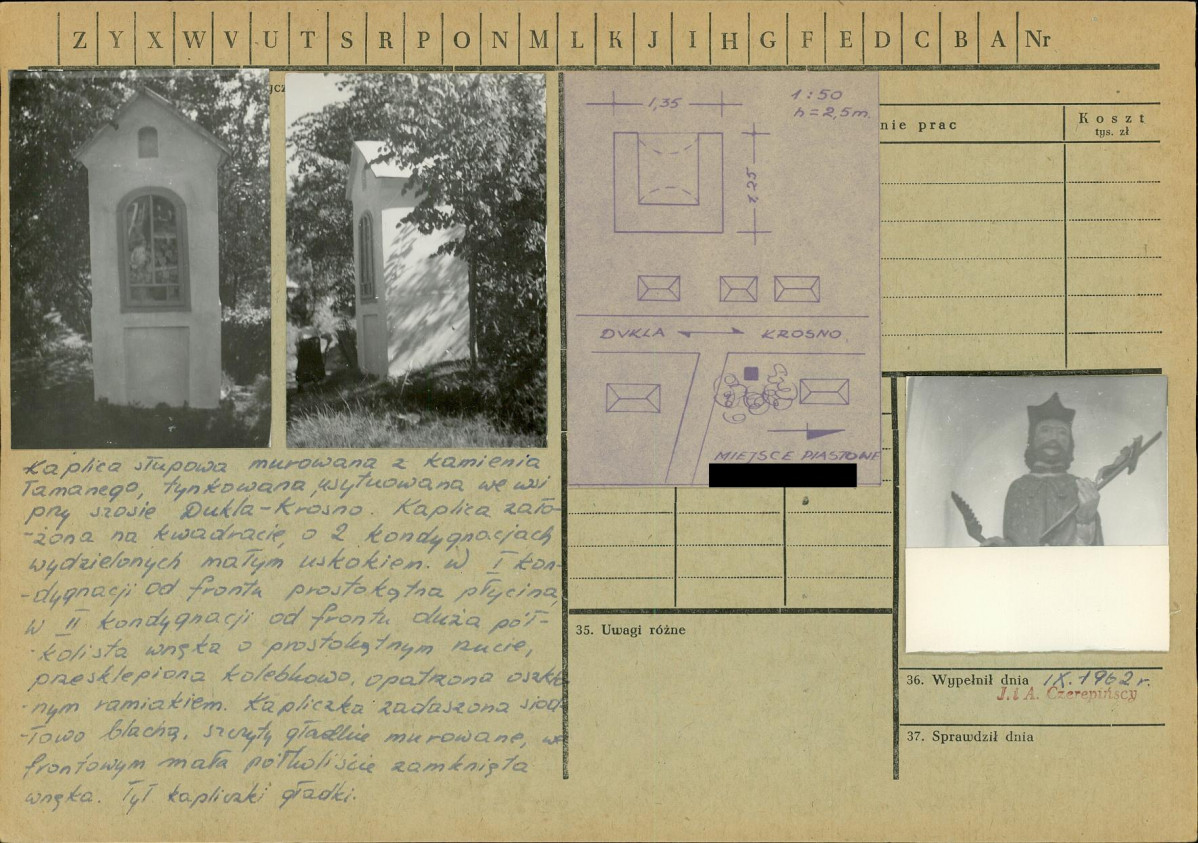 Z Y X W V U T S R P O N M L K J I H G F E D C B A Nr
1,35
1:50
h = 2,5m.
2,25
DUKLA KROSNO
MIEJSCE PIASTOWE
nie prac
Koszt
tys. zł
Kaplica słupowa murowana z kamienia
łamanego, tynkowana, usytuowana we wsi
przy szosie Dukla-Krosno. Kaplica zało-
-żona na kwadracie, o 2 kondygnacjach
wydzielonych małym uskokiem. W I kon-
-dygnacji od frontu prostokątna płycina,
w II kondygnacji od frontu duża pół-
-kolista wnęka o prostokątnym rzucie,
przesklepiona kolebkowo, opatrzona oszklo-
-nym ramiakiem. Kapliczka zadaszona siod-
-łowo blachą, szczyty gładkie murowane, we
frontowym mała półkoliście zamknięta
wnęka. Tył kapliczki gładki.
35. Uwagi różne
36. Wypełnił dnia IX.1962 r.
J. i A. Czerepińscy
37. Sprawdził dnia